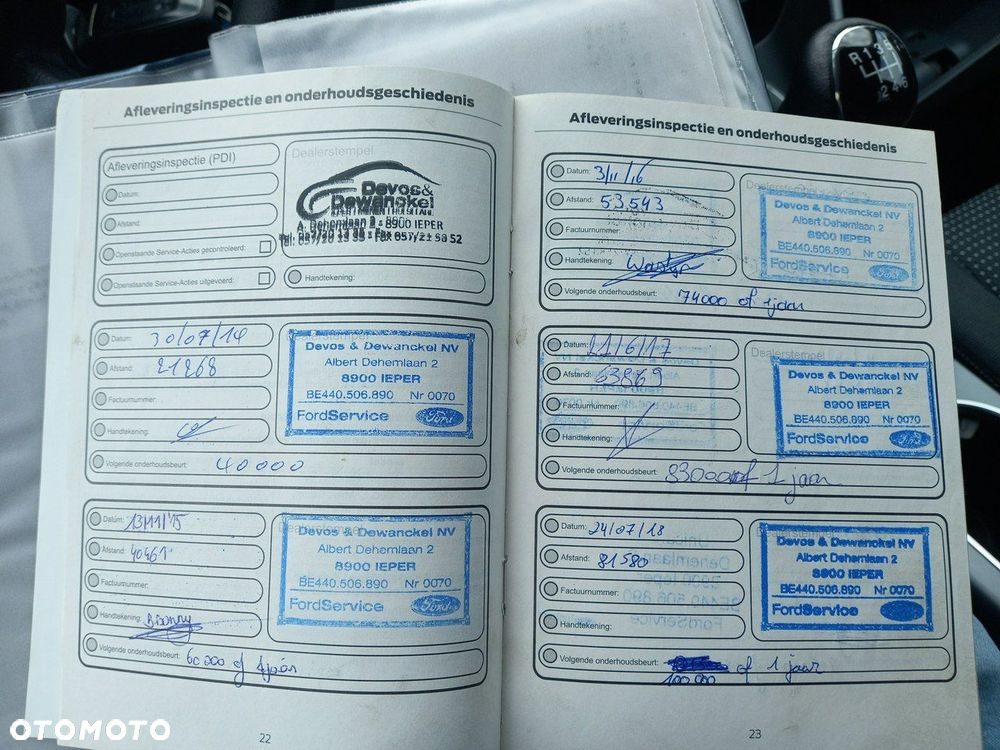 Afleveringsinspectie en onderhoudsgeschiedenis
Afleveringsinspectie (PDI)
Datum:
Afstand:
Openstaande Service-Acties gecontroleerd:
Openstaande Service-Acties uitgevoerd:
Dealerstempel
Devos &
Dewanckel
A. Dehemlaan 2 - 8900 IEPER
Handtekening:
Datum: 30/07/14
Afstand: 21268
Factuurnummer:
Handtekening:
Volgende onderhoudsbeurt: 40000
Dealerstempel
Devos & Dewanckel NV
Albert Dehemlaan 2
8900 IEPER
BE440.506.890 Nr 0070
FordService Ford
Datum: 13/11/15
Afstand: 40461
Factuurnummer:
Handtekening:
Volgende onderhoudsbeurt: 60000 of 1 jaar
Devos & Dewanckel NV
Albert Dehemlaan 2
8900 IEPER
BE440.506.890 Nr 0070
FordService Ford
22
Afleveringsinspectie en onderhoudsgeschiedenis
Datum: 3/11/16
Afstand: 53543
Factuurnummer:
Handtekening:
Volgende onderhoudsbeurt: 74000 of 1 jaar
Dealerstempel
Devos & Dewanckel NV
Albert Dehemlaan 2
8900 IEPER
BE440.506.890 Nr 0070
FordService Ford
Datum: 21/6/17
Afstand: 63869
Factuurnummer:
Handtekening:
Volgende onderhoudsbeurt: 83000 of 1 jaar
Dealerstempel
Devos & Dewanckel NV
Albert Dehemlaan 2
8900 IEPER
BE440.506.890 Nr 0070
FordService Ford
Datum: 24/07/18
Afstand: 81580
Factuurnummer:
Handtekening:
Volgende onderhoudsbeurt: of 1 jaar
100000
Devos & Dewanckel NV
Albert Dehemlaan 2
8900 IEPER
BE440.506.890 Nr 0070
FordService
23
R 1 3 5
2 4 6
OTOMOTO